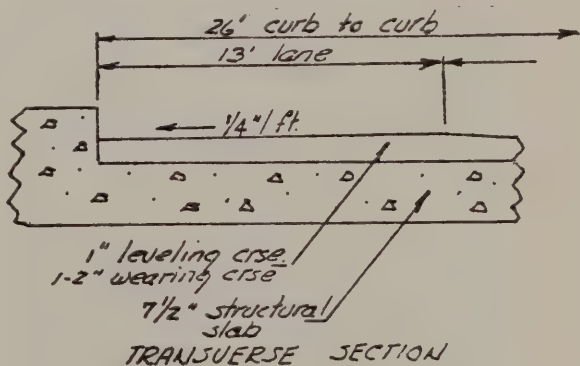 26' curb to curb
13' lane
1/4"/ft.
1" leveling crse.
1-2" wearing crse
7 1/2" structural
slab
TRANSVERSE SECTION